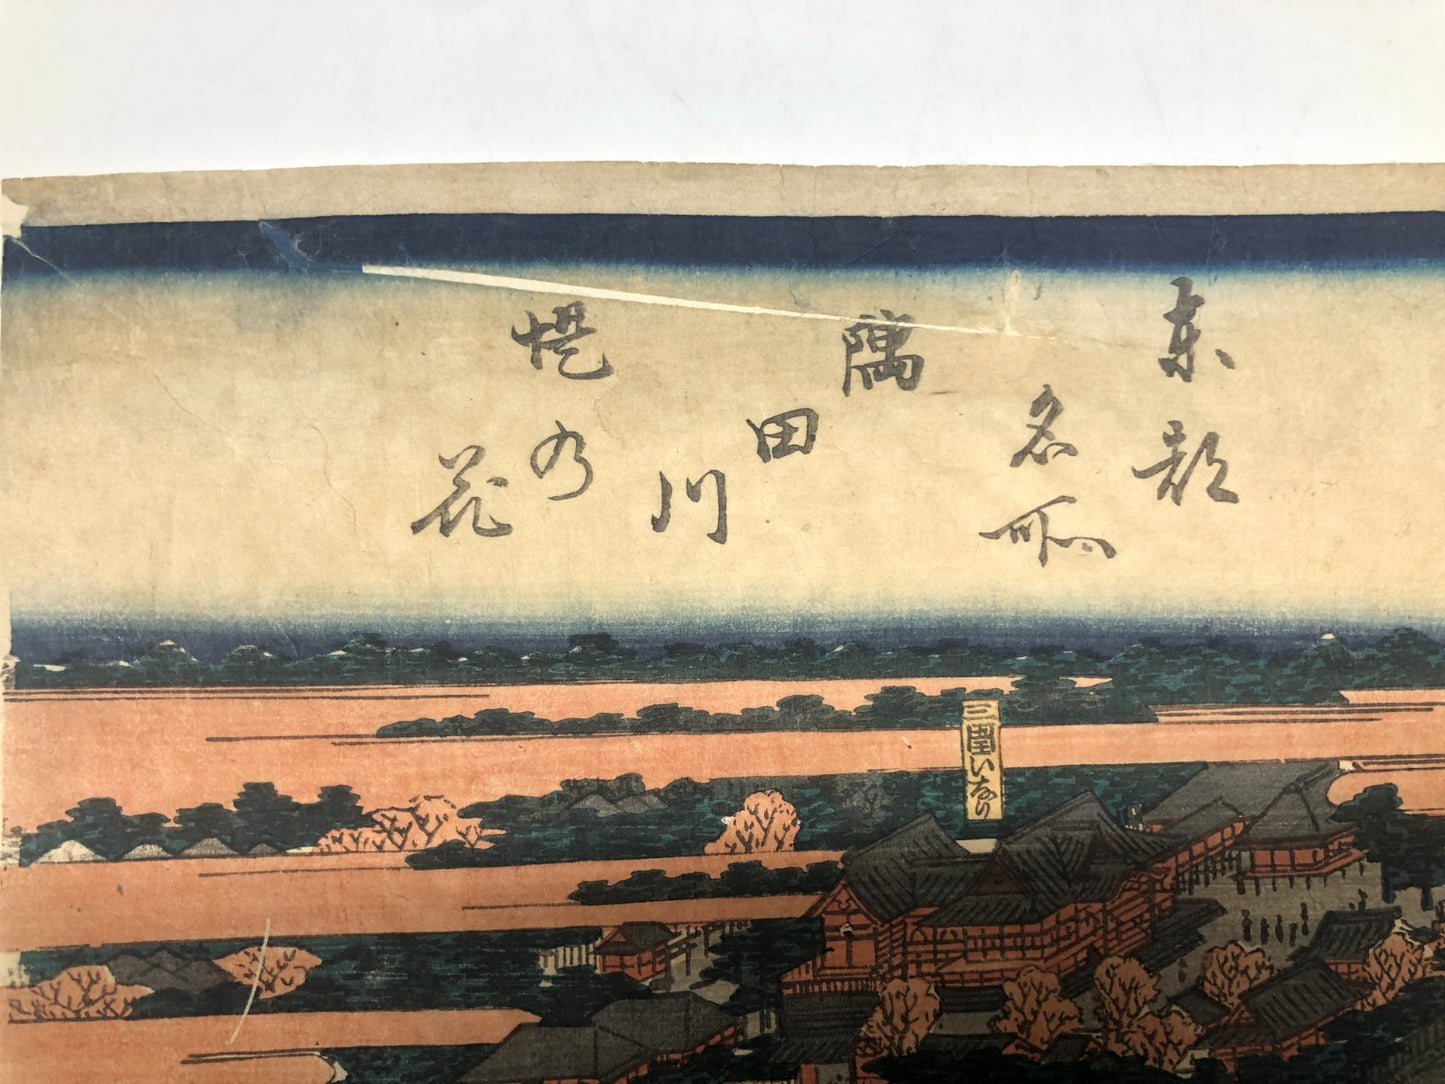 東都
名所
隅田川
堤の花
三囲いなり